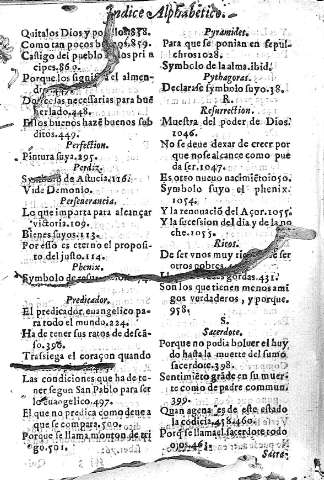 Indice Alphabetico.
Quitalos Dios y
Como tan pocos
Castigo del pueblo
cipes.860.
Porque los el almen
dro.
necessarias para
448.
los buenos hazē buenos sub
ditos.449.
Perfection.
Pintura suya.295.
Perdiz.
Symbolo de Astucia.116.
Vide Demonio.
Perseuerancia.
Lo que importa para alcançar
victoria.109.
Bienes suyos.113.
Por esso es eterno el proposi-
to del justo.114.
Phenix.
Symbolo de
Predicador.
El predicador euangelico pa-
ra todo el mundo.224.
Ha de tener sus ratos de descā-
so.396.
Trasiega el coraçon quando
Las condiciones que ha de te-
ner segun San Pablo para ser
euangelico.497.
El que no predica como deue a
que se compara.500.
Porque se llama monton de tri
go.501.
Pyramides.
Para que se ponian en sepul-
chros 1028.
Symbolo de la alma.ibid.
Pythagoras.
Declarase symbolo suyo.38.
R.
Resurrection.
Muestra del poder de Dios.
1046.
No se deue dexar de creer por
que no se alcance como pue
da ser.1047.
Es otro nueuo nacimiēto 1050.
Symbolo suyo el phenix.
1054.
Y la renouaciō del Açor.1055.
Y la sucession del dia y de la no
che.1055.
Ricos.
De ser vnos muy ser
otros pobres.
gordas.431.
Son los que tienen menos ami
gos verdaderos, y porque.
958.
S.
Sacerdote.
Porque no podia boluer el huy
do hasta la muerte del sumo
sacerdote.398.
Sentimiēto grāde en su muer-
te como de padre commun.
399.
Quan agena es de este estado
la codicia.458.460.
Porq̄ se llama el sacerdote todo
ojos.463.
Sacre-